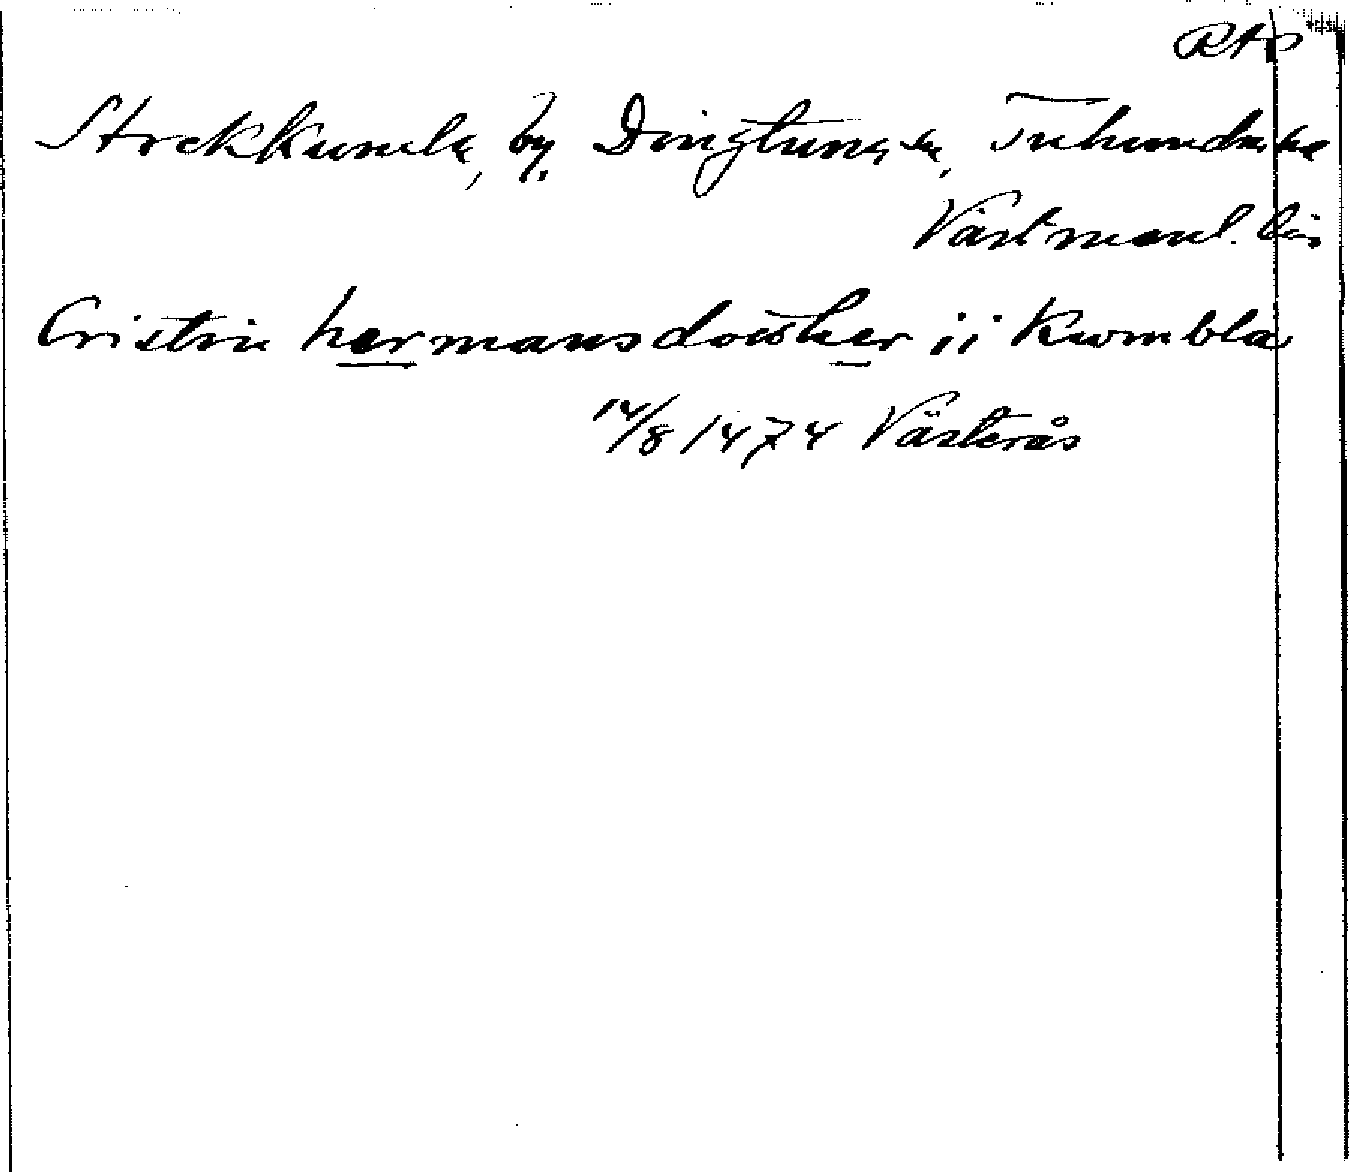 RAp
Stockkumla, by, Dingtuna sn, Tuhundra hd
Västmanl. län
Cristin hermansdotther ii Kwmbla
14/8 1474 Västerås